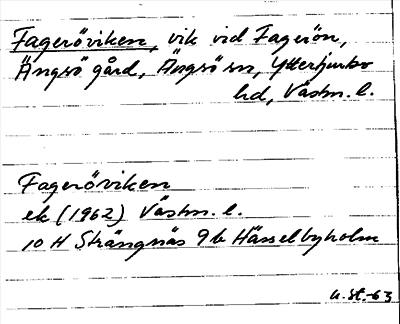 Fageröviken, vik vid Fagerön,
Ängsö gård, Ängsö sn, Yttertjurbo
hd, Västm. l.
Fageröviken
ek (1962) Västm. l.
10 H Strängnäs 9b Hässelbyholm
u. st. -63